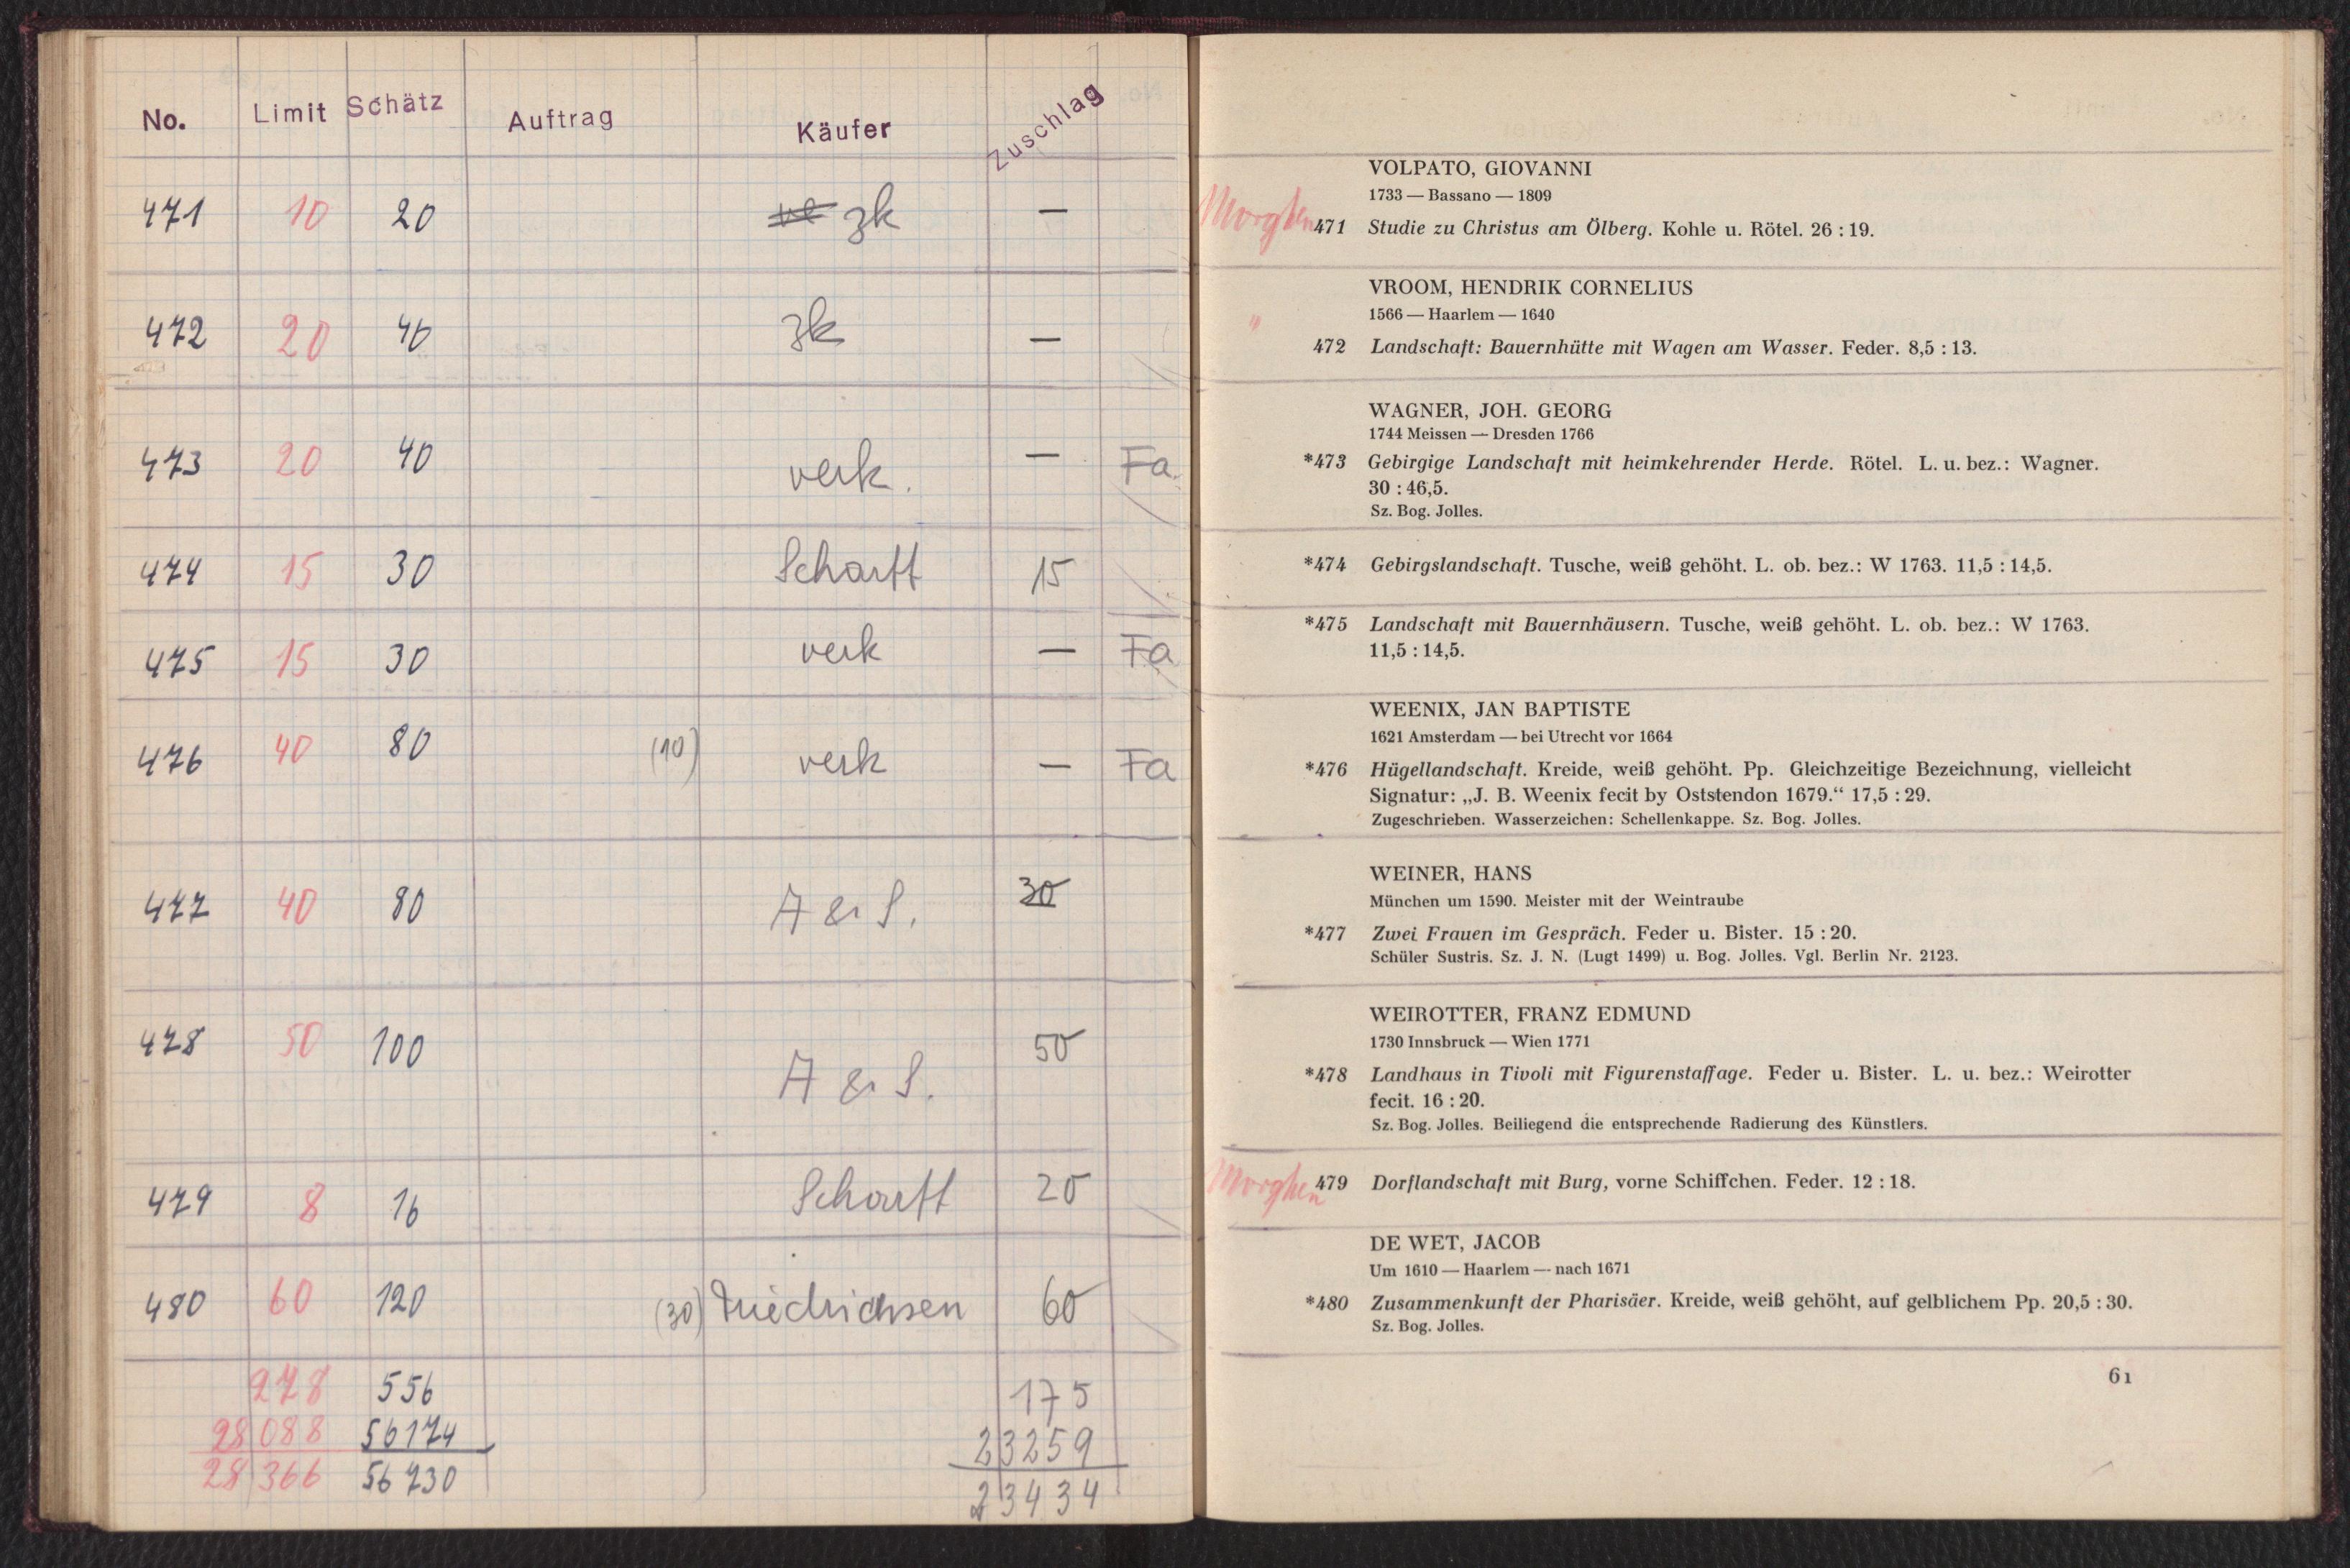 No. Limit Schätz Auftrag Käufer Zuschlag
471 10 20 zk —
472 20 40 zk —
473 20 40 verk. — Fa
474 15 30 Scharff 15
475 15 30 verk — Fa
476 40 80 (10) verk — Fa
477 40 80 A & S. 30
478 50 100 A & S. 50
479 8 16 Scharff 20
480 60 120 (30) Friedrichsen 60
278 556 175
28088 56174 23259
28366 56730 23434
VOLPATO, GIOVANNI
1733 — Bassano — 1809
Morghen 471 Studie zu Christus am Ölberg. Kohle u. Rötel. 26 : 19.
VROOM, HENDRIK CORNELIUS
1566 — Haarlem — 1640
" 472 Landschaft: Bauernhütte mit Wagen am Wasser. Feder. 8,5 : 13.
WAGNER, JOH. GEORG
1744 Meissen — Dresden 1766
*473 Gebirgige Landschaft mit heimkehrender Herde. Rötel. L. u. bez.: Wagner.
30 : 46,5.
Sz. Bog. Jolles.
*474 Gebirgslandschaft. Tusche, weiß gehöht. L. ob. bez.: W 1763. 11,5 : 14,5.
*475 Landschaft mit Bauernhäusern. Tusche, weiß gehöht. L. ob. bez.: W 1763.
11,5 : 14,5.
WEENIX, JAN BAPTISTE
1621 Amsterdam — bei Utrecht vor 1664
*476 Hügellandschaft. Kreide, weiß gehöht. Pp. Gleichzeitige Bezeichnung, vielleicht
Signatur: „J. B. Weenix fecit by Oststendon 1679.“ 17,5 : 29.
Zugeschrieben. Wasserzeichen: Schellenkappe. Sz. Bog. Jolles.
WEINER, HANS
München um 1590. Meister mit der Weintraube
*477 Zwei Frauen im Gespräch. Feder u. Bister. 15 : 20.
Schüler Sustris. Sz. J. N. (Lugt 1499) u. Bog. Jolles. Vgl. Berlin Nr. 2123.
WEIROTTER, FRANZ EDMUND
1730 Innsbruck — Wien 1771
*478 Landhaus in Tivoli mit Figurenstaffage. Feder u. Bister. L. u. bez.: Weirotter
fecit. 16 : 20.
Sz. Bog. Jolles. Beiliegend die entsprechende Radierung des Künstlers.
Morghen 479 Dorflandschaft mit Burg, vorne Schiffchen. Feder. 12 : 18.
DE WET, JACOB
Um 1610 — Haarlem — nach 1671
*480 Zusammenkunft der Pharisäer. Kreide, weiß gehöht, auf gelblichem Pp. 20,5 : 30.
Sz. Bog. Jolles.
61